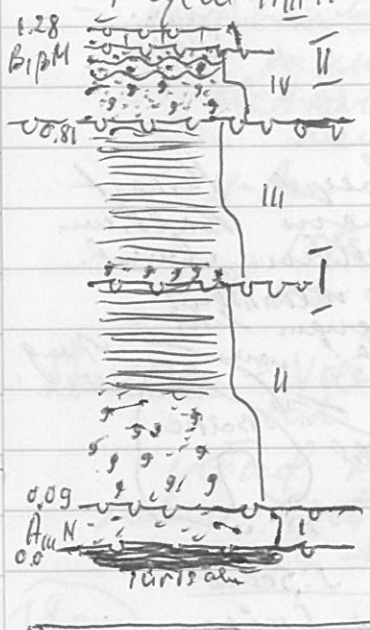 1.28
BıβM
II
IV
0,81
III
I
II
0,09
Aııı N
I
0,0
Türisalu